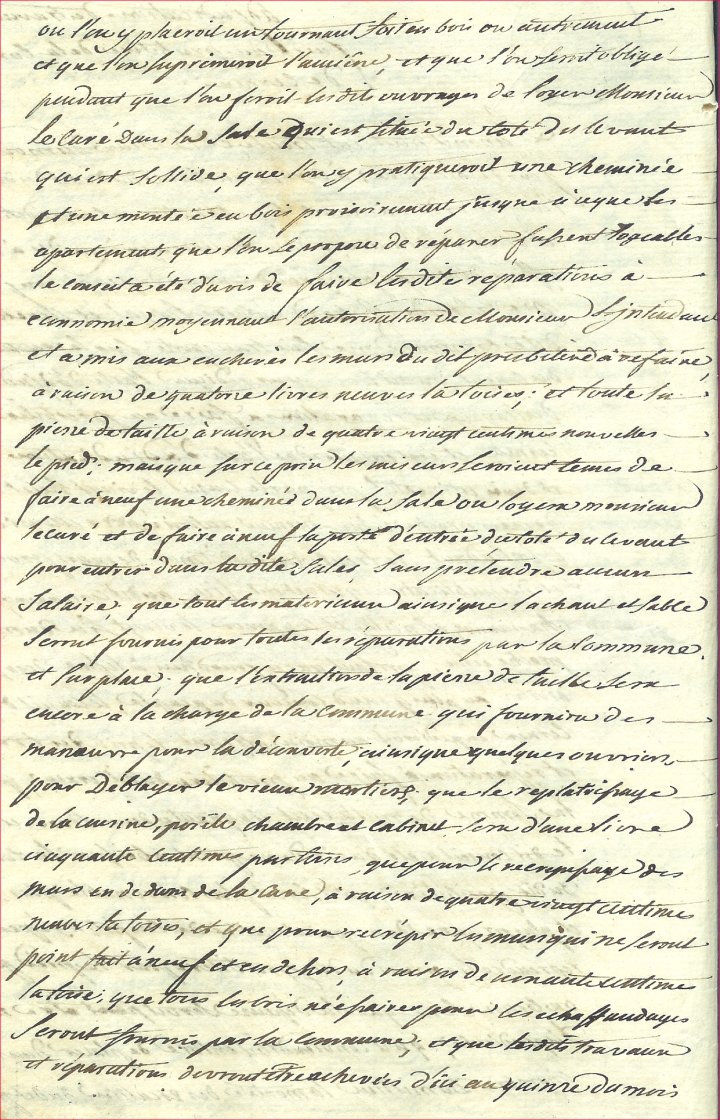 ou l'on y placeroit un tournant soit en bois ou autrement
et que l'on suprimeroit l'ancienne, et que l'on seroit obligé
pendant que l'on feroit lesdits ouvrages de loger Monsieur
le Curé dans la Sale qui est située du coté du levant
qui est sollide, que l'on y pratiqueroit une cheminée
et une montée en bois provisoirement jusque à ce que les
apartements que l'on se propose de réparer fussent logeables
le conseil a été d'avis de faire lesdite réparations à
économie moyennant l'autorisation de Monsieur L'jntendant
et a mis aux encheres les murs du dit presbitère à refaire,
à raison de quatorze livres neuves la toises; et toute la
pierre de taille à raison de quatre vingt centimes nouvelles
le pied; mais que sur ce prix les miseurs seroient tenus de
faire à neuf une cheminée dans la sale ou logera monsieur
le curé et de faire à neuf la porte d'entrée du coté du levant
pour entrer dans la dite Sales, sans prétendre aucun
salaire, que tout les materieaux ainsi que la chaux et sable
seront fournis pour toutes les réparations par la Commune.
et sur place; que l'extraction de la pierre de taille sera
encore à la charge de la Commune qui fournira des
manœuvre pour la découverte, ainsi que quelques ouvriers
pour Déblayer le vieux mortiers; que le replatrissage
de la cuisine, poële chambre et cabinet sera d'une livre
cinquante Centimes par toises, que pour le recrepissage des
murs en dedans de la Cave, à raison de quatre vingt centimes
neuves la toises, et que pour recrépir les murs qui ne seront
point fait à neuf et en dehors, à raison de nonante centimes
la toise; que tous les bois nécessaires pour les echaffaudages
Seront fournis par la Commune, et que lesdits travaux
et réparations devront être achevées d'ici au quinze du mois